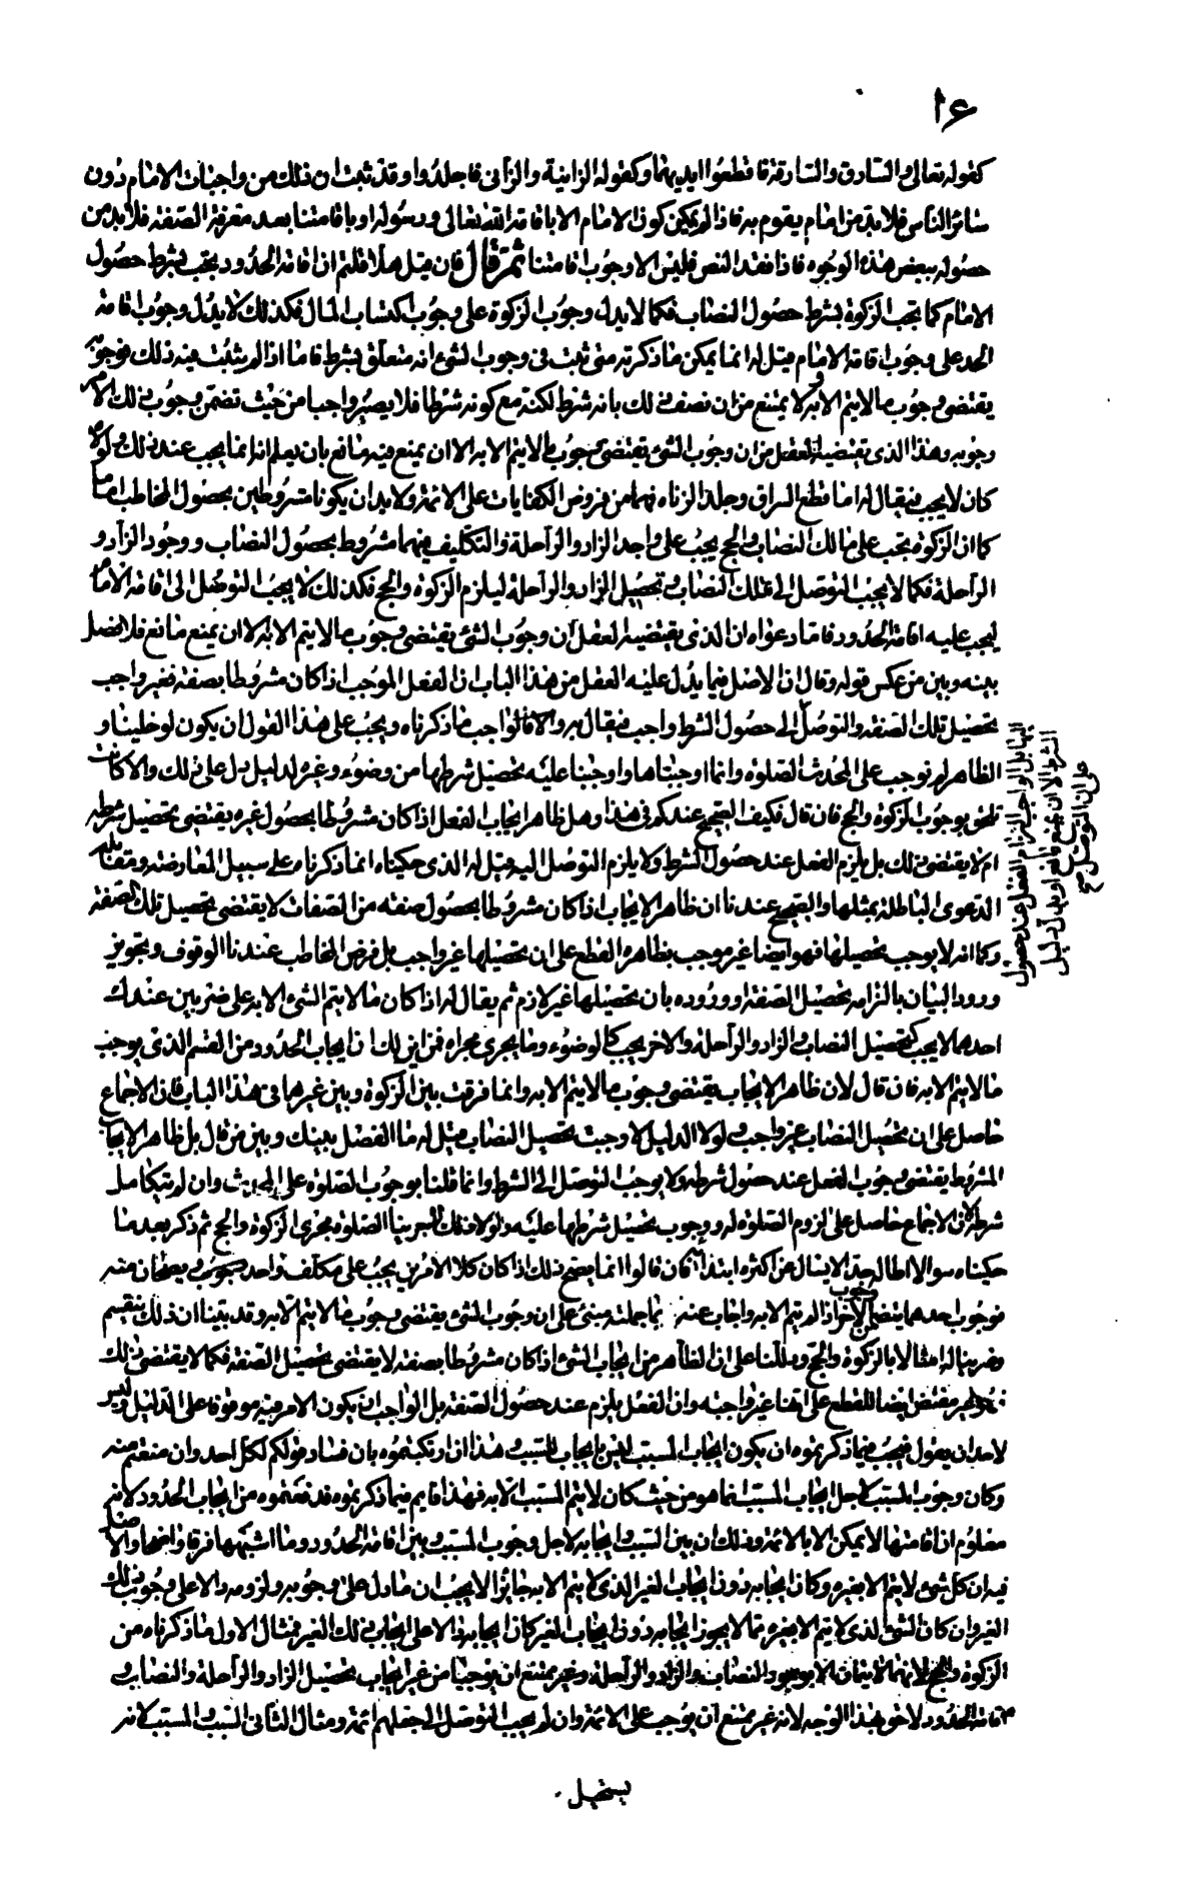 ١٦
كقوله تعالى والسارق والسارقة فاقطعوا ايديهما وكقوله الزانية والزانى فاجلدوا وقد ثبت ان ذلك من واجبات الامام دون
سائر الناس فلا بد من امام يقوم به فاذا لم يكن كون الامام الا باقامة الله تعالى ورسوله او باقامتنا بعد معرفة الصفة فلا بد من
حصوله ببعض هذه الوجوه فاذا فقد النص فليس الا وجوب اقامتنا ثم قال فان قيل هلا قلتم ان اقامة الحدود يجب بشرط حصول
الامام كما تجب الزكوة بشرط حصول النصاب فكما لا يدل وجوب الزكوة على وجوب اكتساب المال فكذلك لا يدل وجوب اقامة
الحد على وجوب اقامة الامام قيل له انما يمكن ما ذكرته متى ثبت فى وجوب الشئ انه متعلق بشرط فاما اذا لم يثبت فيه ذلك فوجوبه
يقتضى وجوب ما لا يتم الا به ولا يمتنع من ان نصف ذلك بانه شرط لكنه مع كونه شرطا فلا يصير واجبا من حيث تضمن وجوب ذلك الامر
وجوبه وهذا الذى يقتضيه العقل من ان وجوب الشئ يقتضى وجوب ما لا يتم الا به الا ان يمنع فيه مانع بان يعلم انه انما يجب عند ذلك ولولا
كان لا يجب فيقال له اما قطع السراق وجلد الزناة فهما من فروض الكفايات على الائمة ولا بد ان يكونا مشروطين بحصول المخاطب اماما
كما ان الزكوة تجب على مالك النصاب والحج يجب على واجد الزاد والراحلة والتكليف فيهما مشروط بحصول النصاب ووجود الزاد و
الراحلة فكما لا يجب التوصل الى تملك النصاب وتحصيل الزاد والراحلة ليلزم الزكوة والحج فكذلك لا يجب التوصل الى اقامة الامام
ليجب عليه اقامة الحدود فاما دعواه ان الذى يقتضيه العقل ان وجوب الشئ يقتضى وجوب ما لا يتم الا به الا ان يمنع مانع فلا فصل
بينه وبين من عكس قوله وقال ان الاصل فيما يدل عليه العقل من هذا الباب ان الفعل الموجب اذا كان مشروطا بصفة فغير واجب
تحصيل تلك الصفة والتوصل الى حصول الشرط واجب فيقال والا فالواجب ما ذكرناه ويجب على هذا القول ان يكون لو خلينا و
الظاهر لم نوجب على المحدث الصلوة وانما اوجبناها واوجبنا عليه تحصيل شرطها من وضوء وغيره لدليل دل على ذلك والا كانت
تلحق بوجوب الزكوة والحج فان قال فكيف الصحيح عندكم فى هذا وهل ظاهر ايجاب الفعل اذا كان مشروطا بحصول غيره يقتضى تحصيل شرطه
ام لا يقتضى ذلك بل يلزم الفعل عند حصول الشرط ولا يلزم التوصل اليه قيل له الذى حكيناه انما ذكرناه على سبيل المعارضة ومقابلة
الدعوى الباطلة بمثلها والصحيح عندنا ان ظاهر الايجاب اذا كان مشروطا بحصول صفة من الصفات لا يقتضى تحصيل تلك الصفة
وكما انه لا يوجب تحصيلها فهو ايضا غير موجب بظاهره القطع على ان تحصيلها غير واجب بل فرض المخاطب عندنا الوقوف وتجويز
ورود البيان بالزامه تحصيل الصفة ووروده بان تحصيلها غير لازم ثم يقال له اذا كان ما لا يتم الشئ الا به على ضربين عندك
احدهما لا يجب كتحصيل النصاب والزاد والراحلة والاخر يجب كالوضوء وما يجرى مجراه فمن اين لك ان ايجاب الحدود من القسم الذى يوجب
ما لا يتم الا به فان قال لان ظاهر الايجاب يقتضى وجوب ما لا يتم الا به وانما فرقت بين الزكوة وبين غيرها فى هذا الباب فان الاجماع
حاصل على ان تحصيل النصاب غير واجب ولولا الدليل لاوجبت تحصيل النصاب قيل له ما الفصل بينك وبين من قال بل ظاهر الايجاب
المشروط يقتضى وجوب الفعل عند حصول شرطه ولا يوجب التوصل الى الشرط وانما قلنا بوجوب الصلوة على المحدث وان لم يتكامل
شرطه لان الاجماع حاصل على لزوم الصلوة له ووجوب تحصيل شرطها عليه ولولا ذلك لاجرينا الصلوة مجرى الزكوة والحج ثم ذكر بعد ما
حكيناه سوالا اطاله جدا لا يسال عن اكثره ابتداه فان قالوا انما يصح ذلك اذا كان كلا الامرين يجب على مكلف واحد ويصحان منه
فوجوب احدهما يتضمن وجوب الاخر اذا لم يتم الا به واجاب عنه بما جملته مبنى على ان وجوب الشئ يقتضى وجوب ما لا يتم الا به وقد بينا ان ذلك ينقسم
وضربنا له امثالا بالزكوة والحج ودللنا على ان الظاهر من ايجاب الشئ اذا كان مشروطا بصفة لا يقتضى تحصيل الصفة فكما لا يقتضى ذلك
فغير مقتض ايضا للقطع على انها غير واجبة وان الفعل يلزم عند حصول الصفة بل الواجب ان يكون الامر فيه موقوفا على الدليل وليس
لاحد ان يقول فيجب فيما ذكرتموه ان يكون ايجاب المسبب ليس بايجاب للسبب وهذا ان ارتكبتموه بان فساد قولكم لكل احد وان منعتم منه
وكان وجوب السبب لاجل ايجاب المسبب انما هو من حيث كان لا يتم المسبب الا به فهذا قايم فيما ذكرتموه فقد نقضتموه من ايجاب الحدود لانه
معلوم ان اقامتها لا يمكن الا بالائمة وذلك ان بين السبب وايجابه لاجل وجوب المسبب وبين اقامة الحدود وما اشبهها فرقا واضحا والاصل
فيه ان كل شئ لا يتم الا بغيره وكان ايجابه دون ايجاب الغير الذى لا يتم الا به جائزا لا يجب ان ما دل على وجوبه ولزومه دالا على وجوب ذلك
الغير وان كان الشئ الذى لا يتم الا بغيره مما لا يجوز ايجابه دون ايجاب الغير كان ايجابه دالا على ايجاب ذلك الغير فمثال الاول ما ذكرناه من
الزكوة والحج لانهما لا يتمان الا بوجود النصاب والزاد والراحلة وغير ممتنع ان يوجبا من غير ايجاب تحصيل الزاد والراحلة والنصاب و
اقامة الحدود لاحق بهذا الوجه لانه غير ممتنع ان يوجب على الائمة وان لم يجب التوصل الى جعلهم ائمة ومثال الثانى السبب والمسبب لانه
يستحيل